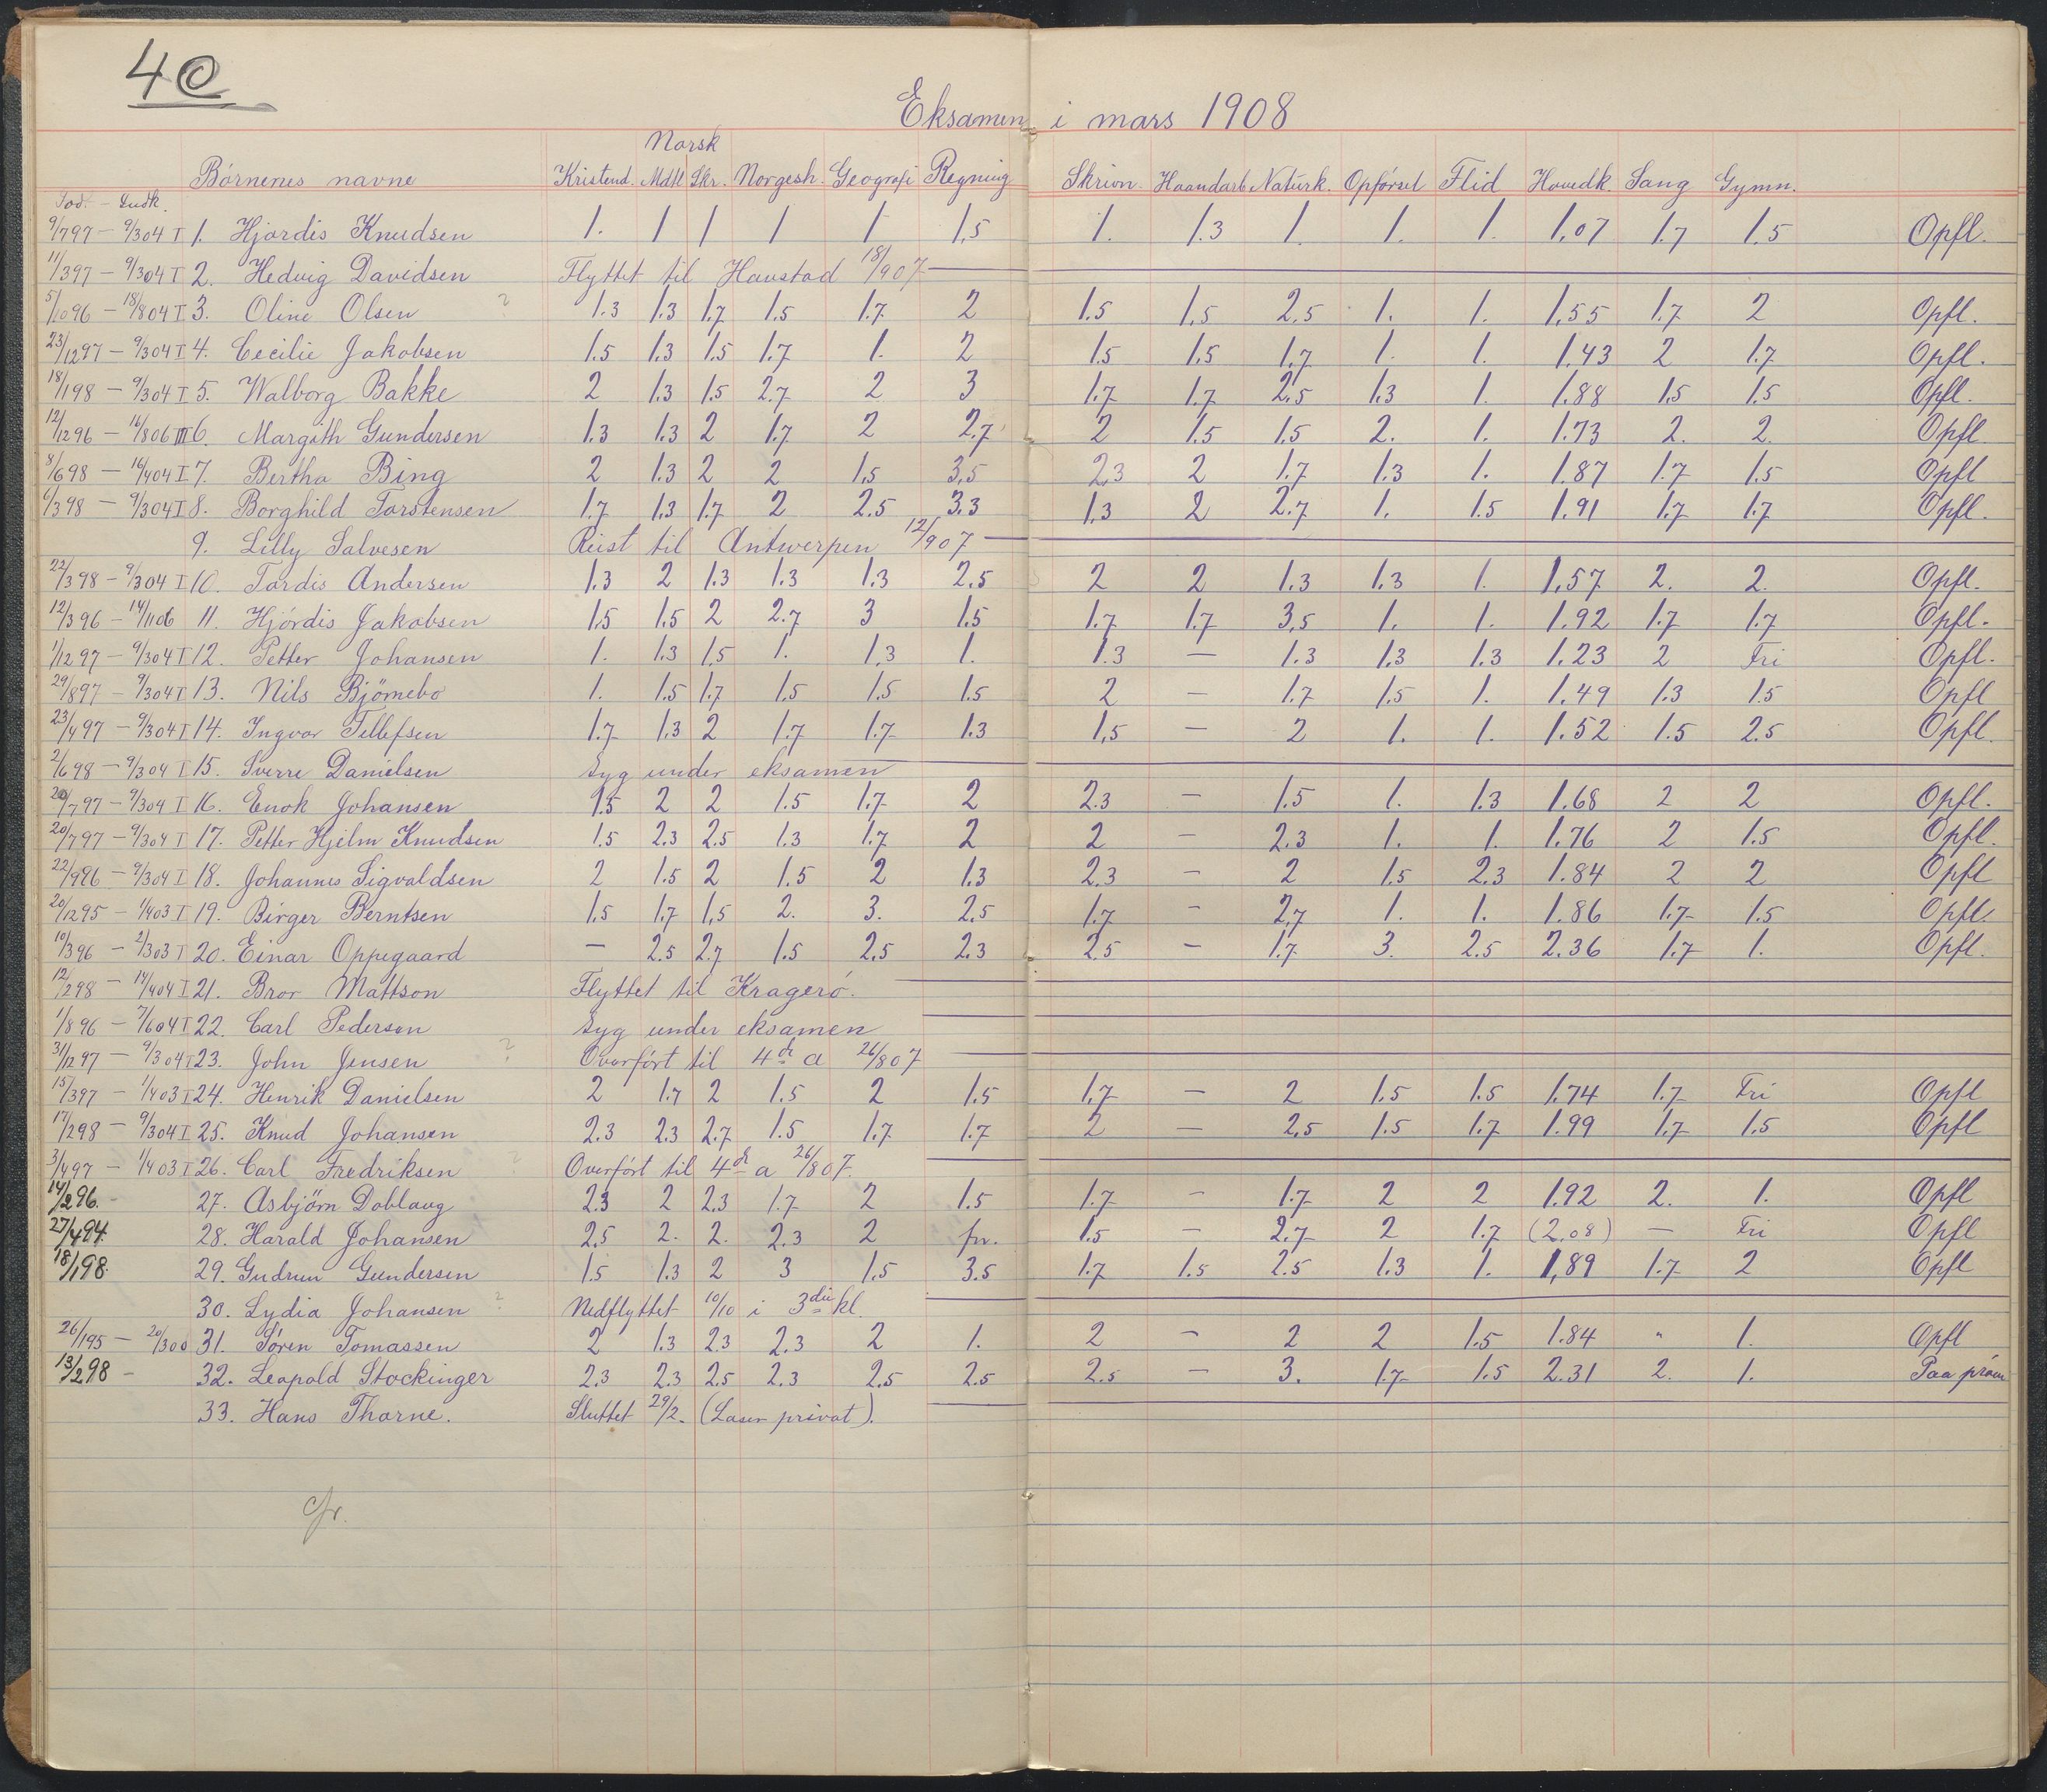 4C
Eksamen i mars 1908
Norsk
Børnenes navne Kristend. Mdtl. Skr. Norgesh. Geografi Regning Skrivn. Haandarb. Naturk. Opførsel Flid Hovedk. Sang Gymn.
Fød. - Indk.
9/7 97 - 9/3 04 I 1. Hjørdis Knudsen 1. 1 1 1 1 1,5 1. 1.3 1. 1. 1. 1,07 1.7 1.5 Opfl.
11/3 97 - 9/3 04 I 2. Hedvig Davidsen Flyttet til Havstad 18/9 07
5/10 96 - 18/8 04 I 3. Oline Olsen ? 1.3 1.3 1.7 1.5 1.7. 2 1.5 1.5 2.5 1. 1. 1.55 1.7 2 Opfl.
23/12 97 - 9/3 04 I 4. Cecilie Jakobsen 1.5 1.3 1.5 1.7 1. 2 1.5 1.5 1.7 1. 1. 1.43 2 1.7 Opfl.
18/1 98 - 9/3 04 I 5. Walborg Bakke 2 1.3 1.5 2.7 2 3 1.7 1.7 2.5 1.3 1. 1.88 1.5 1.5 Opfl.
12/12 96 - 16/8 06 III 6. Margith Gundersen 1.3 1.3 2 1.7 2 2.7 2 1.5 1.5 2. 1. 1.73 2. 2. Opfl
8/6 98 - 16/4 04 I 7. Bertha Bing 2 1.3 2 2 1.5 3,5 2,3 2 1.7 1.3 1. 1.87 1.7 1.5 Opfl
6/3 98 - 9/3 04 I 8. Borghild Torstensen 1.7 1.3 1.7 2 2.5 3.3 1.3 2 2.7 1. 1.5 1.91 1.7 1.7 Opfl.
9. Lilly Salvesen Reist til Antwerpen 12/9 07
22/3 98 - 9/3 04 I 10. Tordis Andersen 1.3 2 1.3 1.3 1.3 2.5 2 2 1.3 1.3 1. 1,57 2. 2. Opfl.
12/3 96 - 14/11 06 11. Hjördis Jakobsen 1.5 1.5 2 2.7 3 1.5 1.7 1.7 3,5 1. 1. 1.92 1.7 1.7 Opfl.
1/12 97 - 9/3 04 I 12. Petter Johansen 1. 1.3 1,5 1. 1,3 1. 1.3 - 1.3 1.3 1.3 1.23 2 Fri Opfl.
29/8 97 - 9/3 04 I 13. Nils Björnebo 1. 1.5 1.7 1.5 1.5 1.5 2 - 1.7 1.5 1. 1.49 1.3 1.5 Opfl
23/4 97 - 9/3 04 I 14. Ingvar Tellefsen 1.7 1.3 2 1.7 1.7 1.3 1.5 - 2 1. 1. 1.52 1.5 2.5 Opfl.
2/6 98 - 9/3 04 I 15. Sverre Danielsen Syg under eksamen
20/7 97 - 9/3 04 I 16. Enok Johansen 1.5 2 2 1.5 1.7 2 2.3 - 1.5 1. 1.3 1.68 2 2 Opfl.
20/7 97 - 9/3 04 I 17. Petter Hjelm Knudsen 1.5 2.3 2.5 1.3 1.7 2 2 - 2.3 1. 1. 1.76 2 1.5 Opfl.
22/9 96 - 9/3 04 I 18. Johannes Sigvaldsen 2 1.5 2 1.5 2 1.3 2.3 - 2 1.5 2.3 1.84 2 2 Opfl
20/12 95 - 1/4 03 I 19. Birger Berntsen 1.5 1.7 1,5 2. 3. 2.5 1.7 - 2,7 1. 1. 1.86 1.7 1.5 Opfl.
10/3 96 - 2/3 03 I 20. Einar Oppegaard - 2.5 2.7 1.5 2.5 2.3 2.5 - 1.7 3. 2.5 2.36 1.7 1. Opfl.
12/2 98 - 14/4 04 I 21. Bror Mattson Flyttet til Kragerö.
1/8 96 - 7/6 04 I 22. Carl Pedersen Syg under eksamen
31/12 97 - 9/3 04 I 23. John Jensen ? Overført til 4de a 26/8 07
15/3 97 - 1/4 03 I 24. Henrik Danielsen 2 1.7 2 1.5 2 1.5 1.7 - 2 1.5 1.5 1.74 1.7 Fri Opfl
17/2 98 - 9/3 04 I 25. Knud Johansen 2.3 2.3 2.7 1.5 1.7 1.7 2 - 2.5 1.5 1.7 1.99 1.7 1.5 Opfl
3/4 97 - 1/4 03 I 26. Carl Fredriksen ? Overført til 4de a 26/8 07.
14/2 96. - 27. Asbjörn Doblaug 2.3 2 2.3 1.7 2 1.5 1.7 - 1.7 2 2 1.92 2. 1. Opfl
27/4 94. 28. Harald Johansen 2.5 2. 2. 2.3 2 fr. 1.5 - 2.7 2 1.7 (2.08) - Fri Opfl
18/1 98. 29. Gudrun Gundersen 1.5 1.3 2 3 1.5 3.5 1.7 1.5 2.5 1.3 1. 1,89 1.7 2 Opfl
30. Lydia Johansen ? Nedflyttet 10/10 i 3die kl.
26/1 95 - 20/3 00 31. Søren Tomassen 2 1.3 2.3 2.3 2 1. 2 - 2 2 1.5 1.84 " 1. Opfl
13/2 98 - 32. Leopold Stockinger 2.3 2.3 2.5 2.3 2.5 2.5 2.5 - 3. 1.7 1.5 2.31 2. 1. Paa prøve
33. Hans Thorne. Sluttet 29/2. (Læser privat).